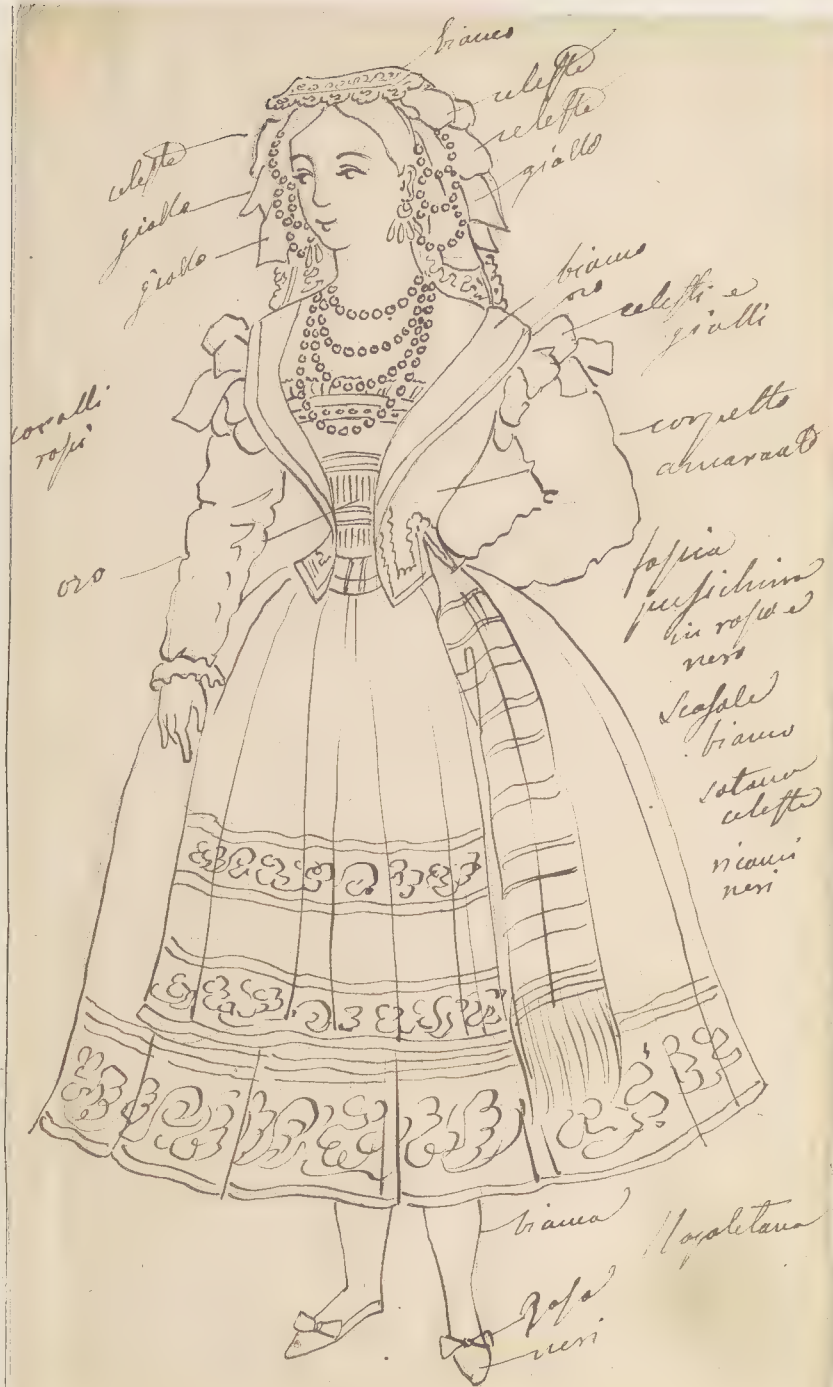 bianco
celeste
celeste
giallo
celeste
giallo
giallo
bianco
oro
celesti e
gialli
coralli
rossi
corpetto
amaranto
oro
fascia
in rosso e
nero
Scosale
bianco
sotana
celeste
ricami
neri
bianca
Napoletana
Rosa
neri